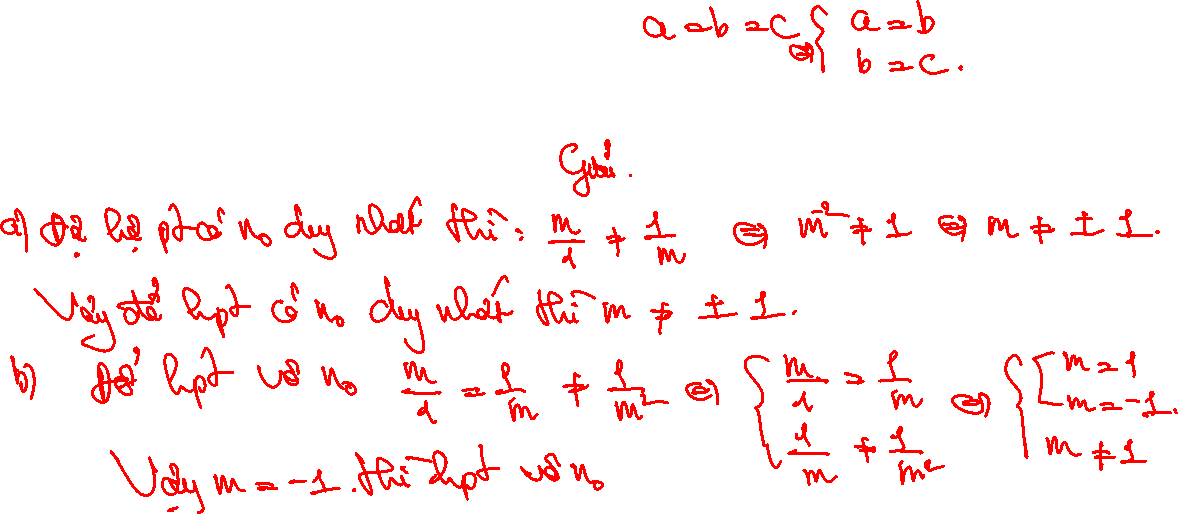 a = b = c ⇔ { a = b
b = c.
Giải.
a) Để hệ pt có n₀ duy nhất thì: m/1 ≠ 1/m ⇔ m² ≠ 1 ⇔ m ≠ ± 1.
Vậy để hpt có n₀ duy nhất thì m ≠ ± 1.
b) Để hpt vô n₀ m/1 = 1/m ≠ 1/m² ⇔ { m/1 = 1/m ; 1/m ≠ 1/m² ⇔ { [ m = 1 ; m = -1. ; m ≠ 1
Vậy m = -1. thì hpt vô n₀